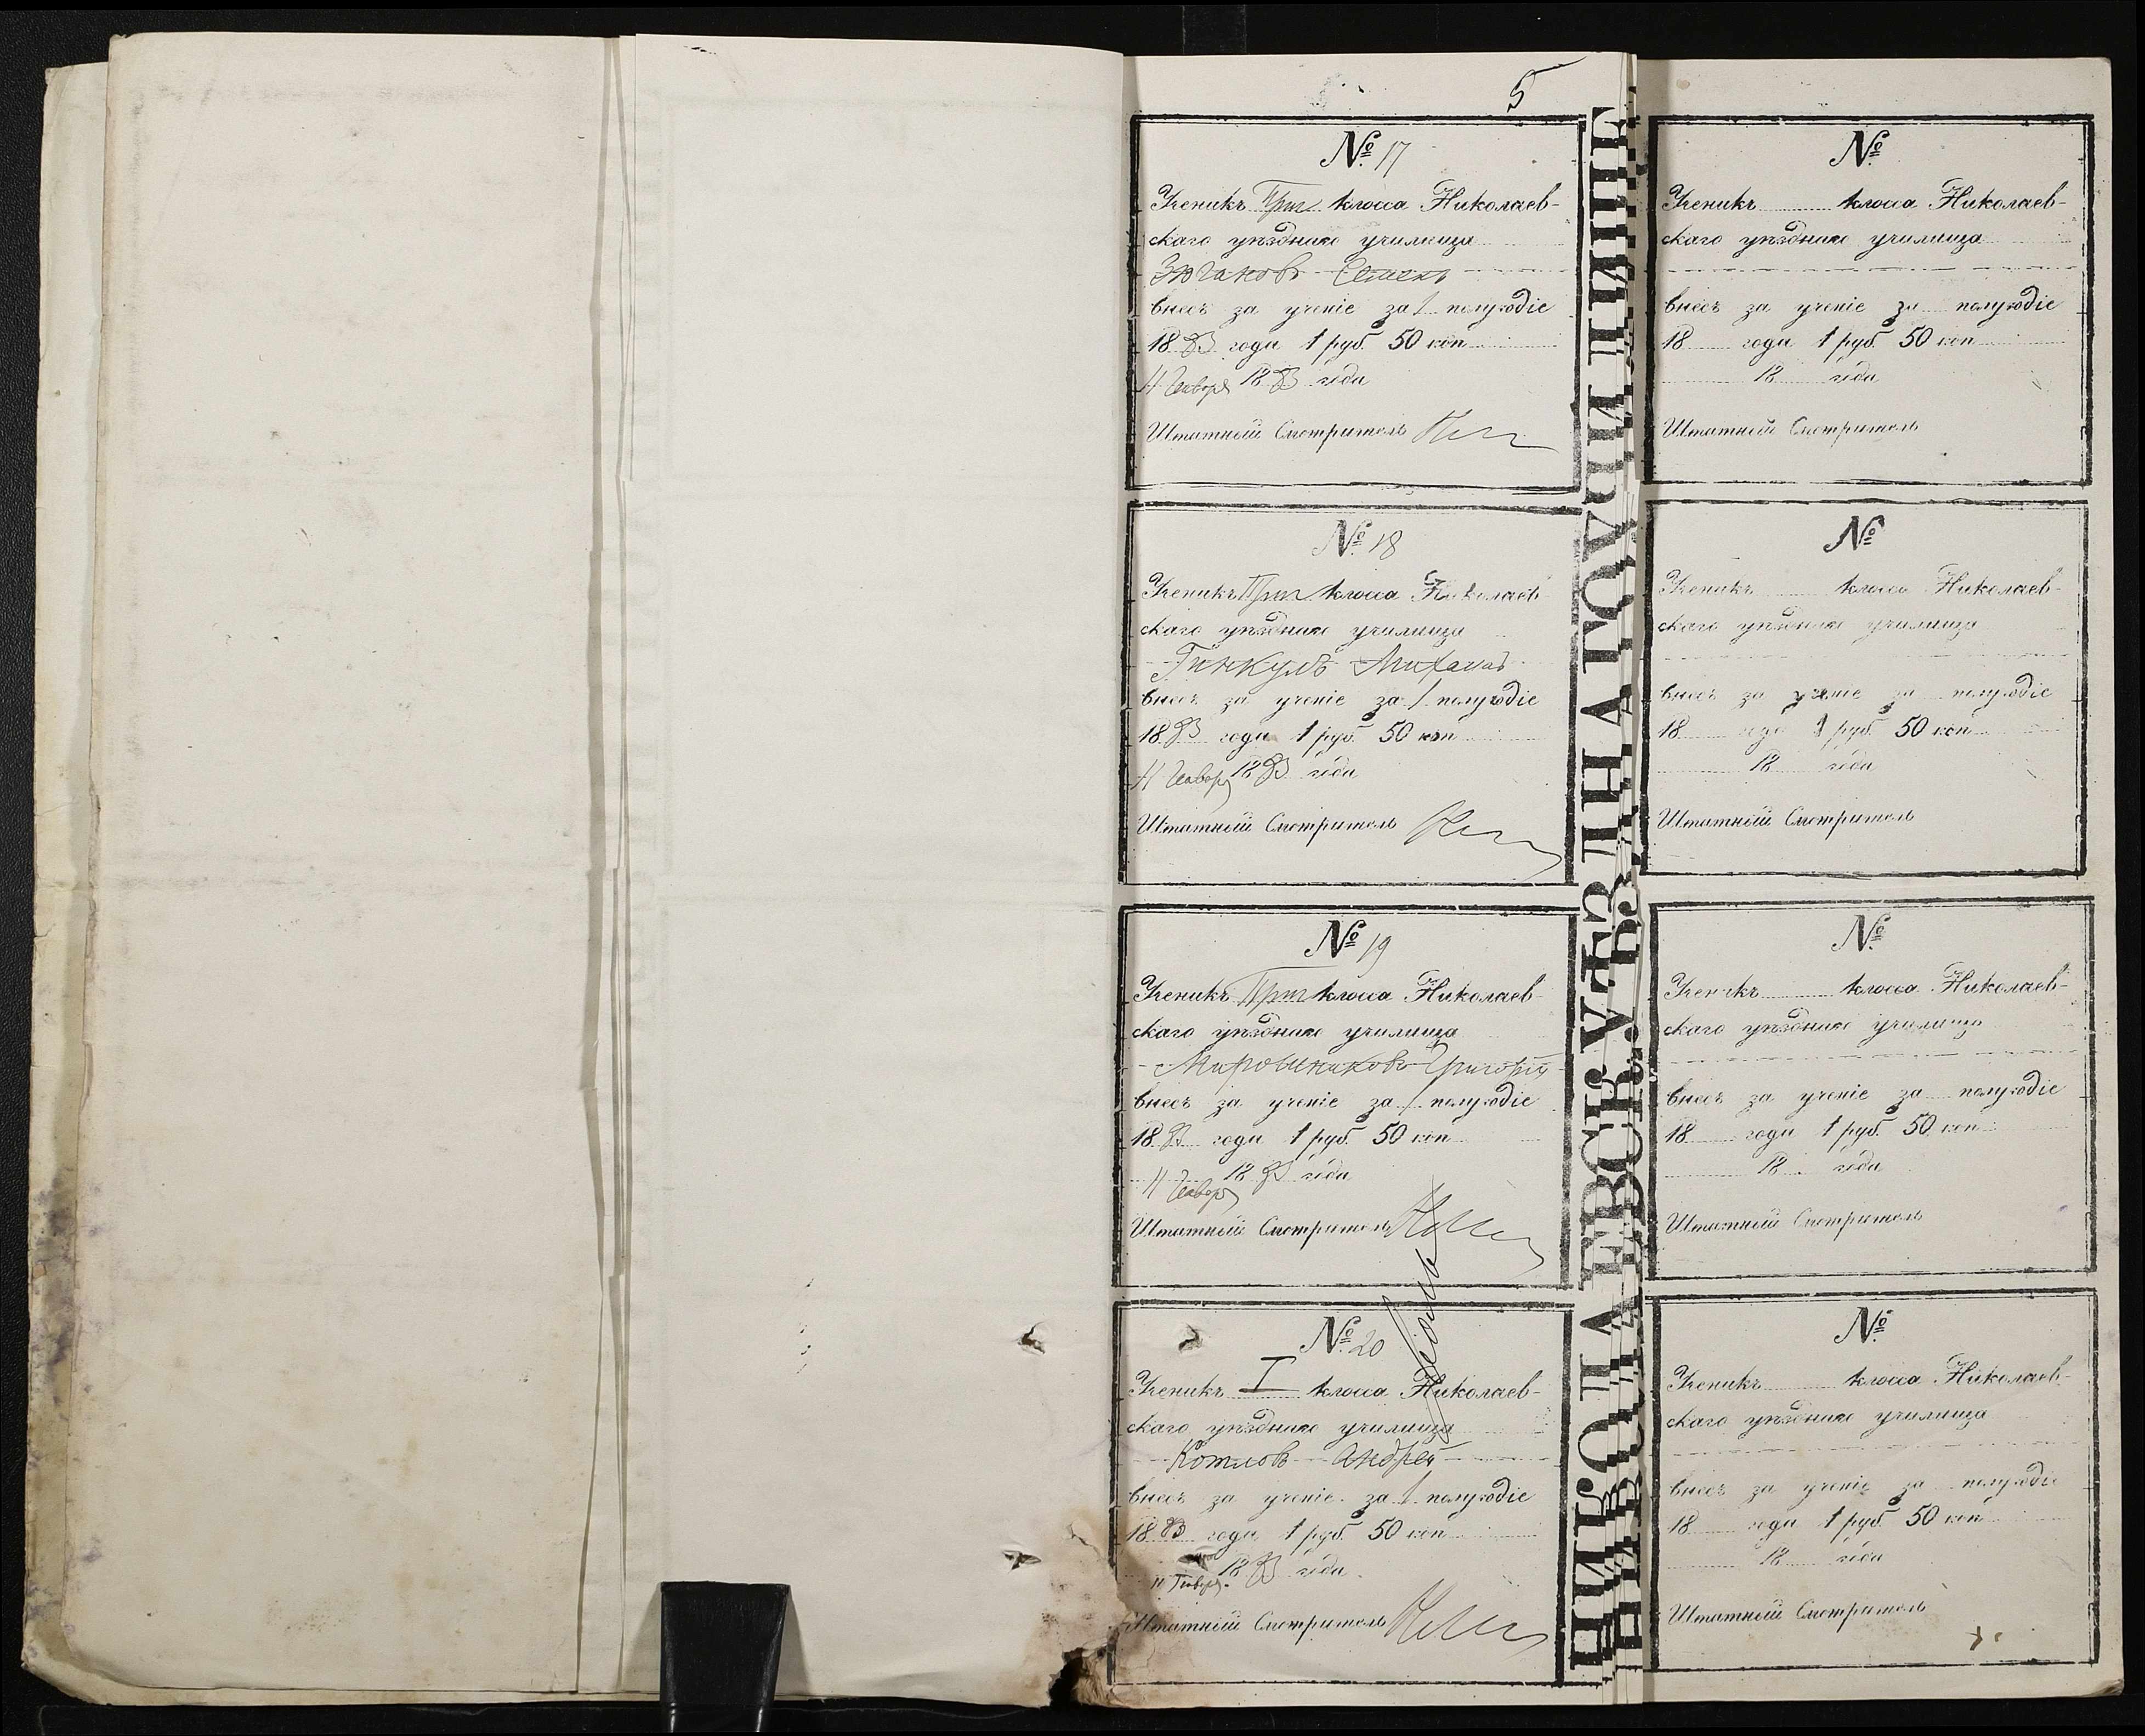 5
№ 17
Ученикъ Приг класса Николаев-
скаго уѣзднаго училища
Семенъ
внесъ за ученіе за 1 полугодіе
1883 года 1 руб. 50 коп
11 Января 1883 года
Штатный Смотритель
№ 18
Ученикъ Приг класса Николаев-
скаго уѣзднаго училища
Гинкулъ Михаилъ
внесъ за ученіе за 1 полугодіе
1883 года 1 руб. 50 коп
11 Января 1883 года
Штатный Смотритель
№ 19
Ученикъ Приг класса Николаев-
скаго уѣзднаго училища
Мирошниковъ Григорій
внесъ за ученіе за 1 полугодіе
1883 года 1 руб. 50 коп
11 Января 1883 года
Штатный Смотритель
№ 20
Ученикъ I класса Николаев-
скаго уѣзднаго училища
Котловъ Андрей
внесъ за ученіе за 1 полугодіе
1883 года 1 руб. 50 коп
11 Января 1883 года
Штатный Смотритель
НИКОЛАЕВСК. УѢЗДНАГО УЧИЛИЩ
№
Ученикъ класса Николаев-
скаго уѣзднаго училища
внесъ за ученіе за полугодіе
18 года 1 руб. 50 коп
18 года
Штатный Смотритель
№
Ученикъ класса Николаев-
скаго уѣзднаго училища
внесъ за ученіе за полугодіе
18 года 1 руб. 50 коп
18 года
Штатный Смотритель
№
Ученикъ класса Николаев-
скаго уѣзднаго училища
внесъ за ученіе за полугодіе
18 года 1 руб. 50 коп
18 года
Штатный Смотритель
№
Ученикъ класса Николаев-
скаго уѣзднаго училища
внесъ за ученіе за полугодіе
18 года 1 руб. 50 коп
18 года
Штатный Смотритель